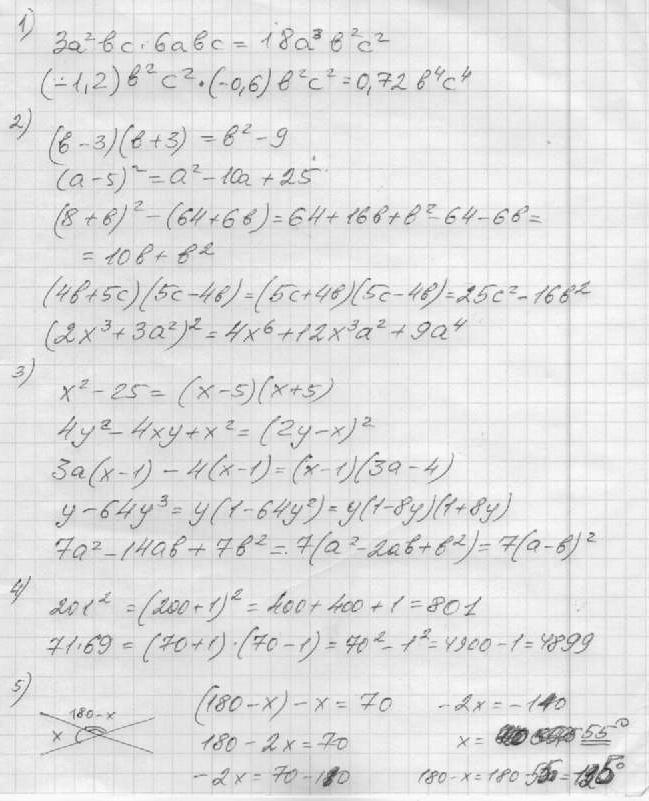 1)
3a²bc · 6abc = 18a³b²c²
(-1,2)b²c² · (-0,6)b²c² = 0,72b⁴c⁴
2)
(b-3)(b+3) = b²-9
(a-5)² = a²-10a+25
(8+b)² - (64+6b) = 64+16b+b²-64-6b =
= 10b+b²
(4b+5c)(5c-4b) = (5c+4b)(5c-4b) = 25c²-16b²
(2x³+3a²)² = 4x⁶+12x³a²+9a⁴
3)
x²-25 = (x-5)(x+5)
4y²-4xy+x² = (2y-x)²
3a(x-1)-4(x-1) = (x-1)(3a-4)
y-64y³ = y(1-64y²) = y(1-8y)(1+8y)
7a²-14ab+7b² = 7(a²-2ab+b²) = 7(a-b)²
4)
201² = (200+1)² = 400+400+1 = 801
71·69 = (70+1)·(70-1) = 70²-1² = 4900-1 = 4899
5)
180-x
x
(180-x)-x = 70
180-2x = 70
-2x = 70-180
-2x = -110
x = 55°
180-x = 180-55 = 125°